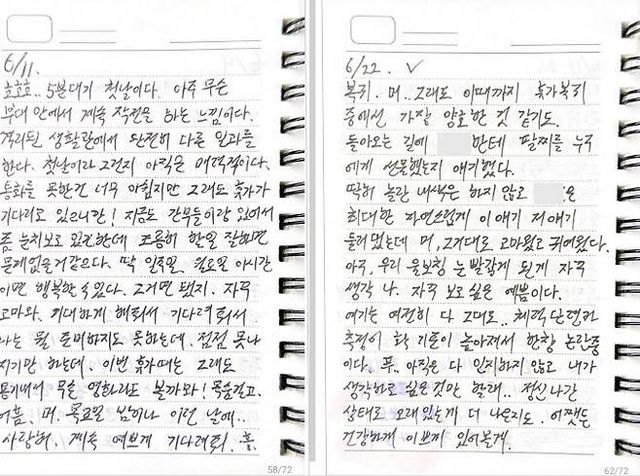 6/11.
호호호.. 5분대기 첫날이다. 아주 무슨
부대 안에서 계속 작전을 하는 느낌이다.
격리된 생활관에서 완전히 다른 일과를
한다. 첫날이라 그런지 아직은 매력적이다.
통화를 못한건 너무 아쉽지만 그래도 휴가가
기다리고 있으니깐! 지금도 간부들이랑 있어서
좀 눈치보고 있긴한데 조용히 할일 잘하면
문제없을거같은다. 딱 일주일, 월요일 이시간
이면 행복할 수 있다. 그거면 됐지. 자꾸
고마워. 기대하게 해줘서 기다려줘서.
나는 뭘 준비하지도 못하는데. 점점 못나
지기만 하는데. 이번 휴가때는 그래도
용기내서 무슨 영화라도 볼까봐! 목숨걸고.
어흠. 머. 목요일 밤이나 이런 날에..
사랑해. 계속 예쁘게 기다려줘. 흠.
58/72
6/22. ✓
복귀. 머.. 그래도 이때까지 휴가복귀
중에선 가장 양호한 것 같기도.
돌아오는 길에 한테 팔찌를 누구
에게 선물했는지 얘기했다.
딱히 놀란 내색은 하지 않고 은
최대한 자연스럽게 이 얘기 저 얘기
들려줬는데 머, 그거대로 고마웠고 귀여웠다.
아무. 우리 울보찡 눈 빨갛게 된게 자꾸
생각 나. 자꾸 보고싶은 예쁨이다.
여기는 여전히 다 그대로.. 체력단련과
측정이 한 기준이 높아져서 한창 논란중
이다. 푸.. 아직은 다 인지하지 않고 내가
생각하고 싶은것만 할래.. 정신나간
상태로 오래있는게 더 나을지도. 어쨌든
건강하게 이쁘게 있어볼게.
62/72